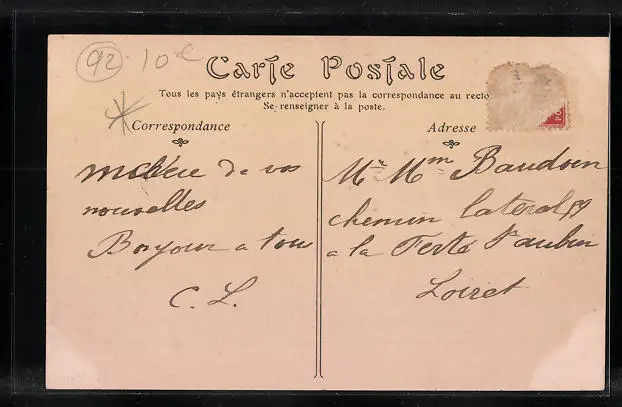 92 10€
Carte Postale
Tous les pays étrangers n'acceptent pas la correspondance au recto
Se renseigner à la poste.
Correspondance
de vos
nouvelles
Bonjour a tous
C. L.
Adresse
Mr Mme Baudoin
chemin lateral
a la Ferté St aubin
Loiret